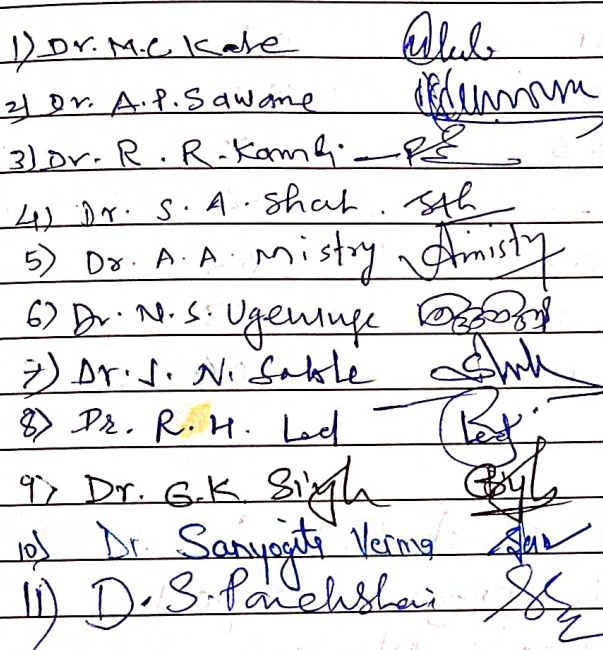 1) Dr. M.C. Kale
2) Dr. A.P. Sawane
3) Dr. R. R. Kamdi
4) Dr. S. A. Shah.
5) Dr. A. A. Mistry Amistry
6) Dr. N. S. Ugemuge
7) Dr. S. N. Sable
8) Dr. R. H. Lad
9) Dr. G.K. Singh
10) Dr. Sanyogita Verma
11) D. S. Panchbhai